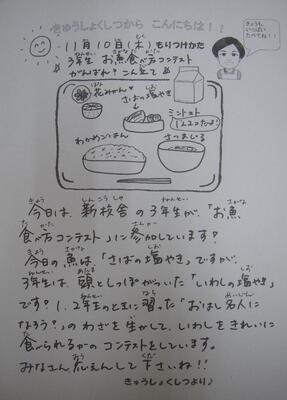 きゅうしょくしつから こんにちは!!
きょうも、
いっぱい
たべてね!!
11月10日(木) もりつけかた
3年生 お魚食べ方コンテスト
がんばれ!こんだて
花みかん
さばの塩やき
ミニトマト
1人2こだよ!
わかめごはん
さつまじる
今日は、新校舎の3年生が、「お魚
食べ方コンテスト」に参加しています!
今日の魚は、「さばの塩やき」ですが、
3年生は、頭としっぽがついた「いわしの塩やき」
です!1.2年生のときに習った「おはし名人に
なろう?」のわざを生かして、いわしをきれいに
食べられるかのコンテストをしています。
みなさん 応えんして下さいね!!
きゅうしょくしつより♪